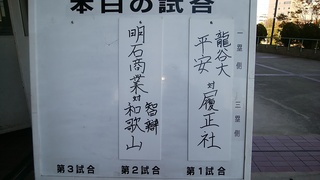 本日の試合
一塁側 三塁側
龍谷大
平安 対 履正社
第1試合
明石商業 対 智辯
和歌山
第2試合
第3試合